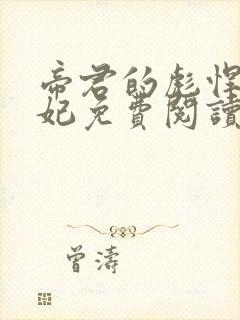 帝君的彪悍
妃免費閱讀
曾濤